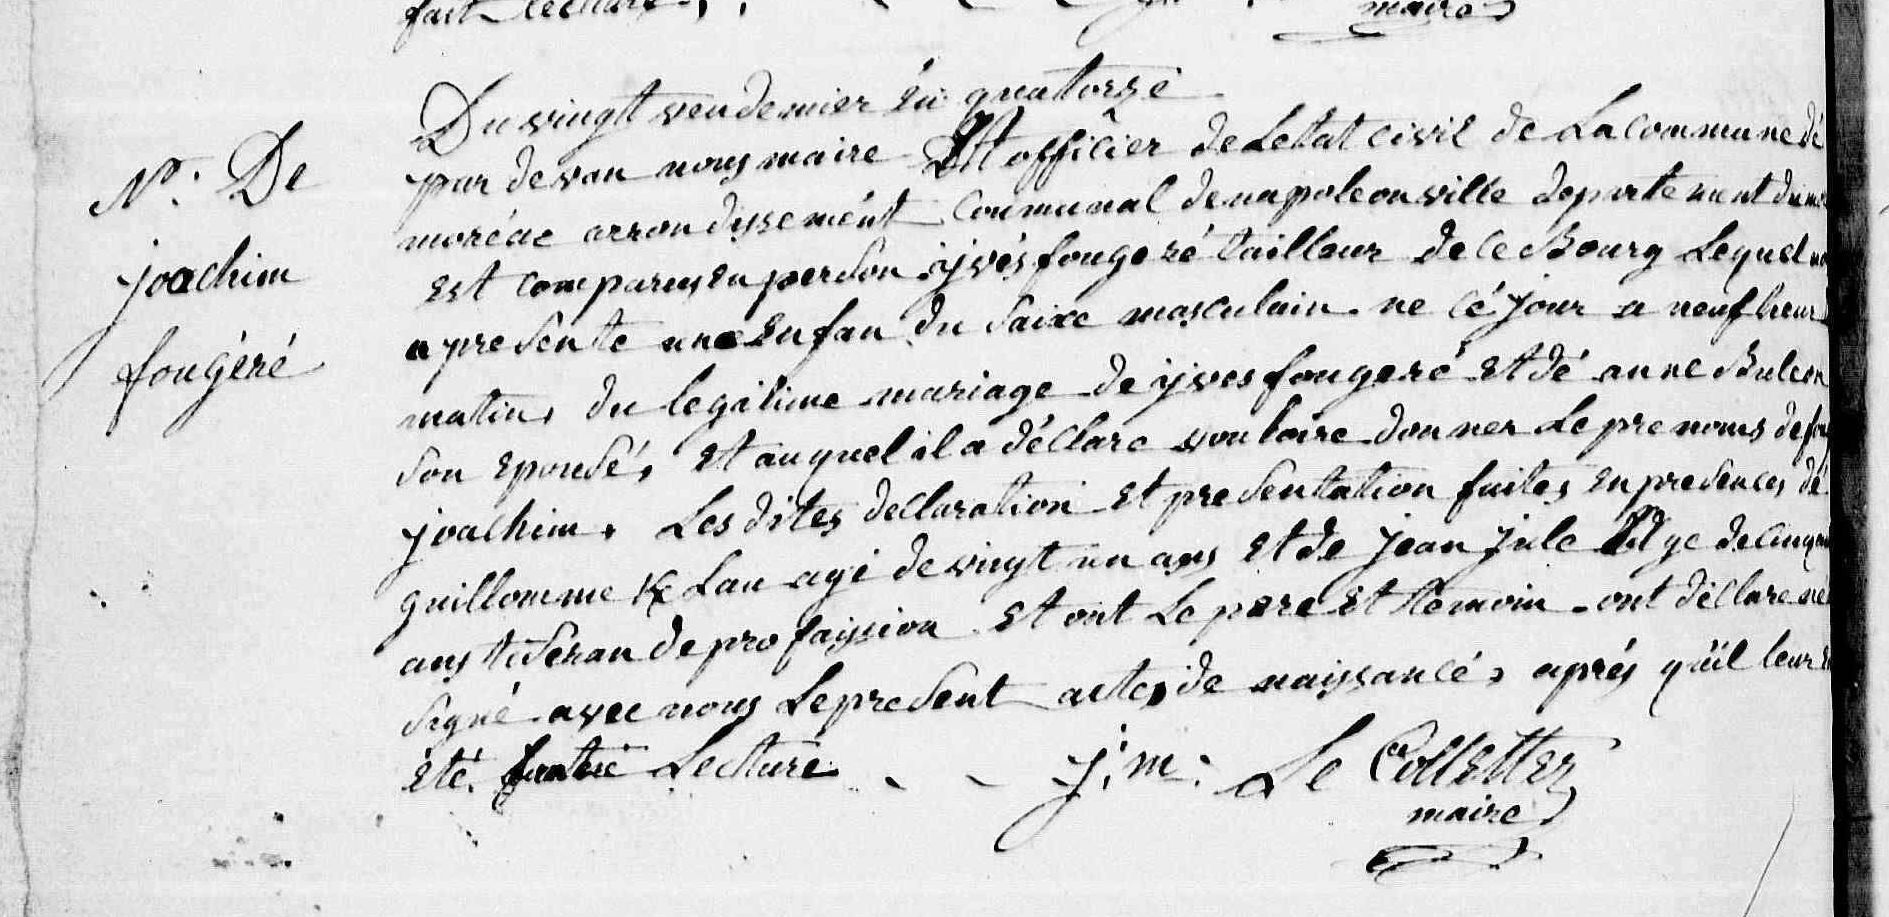 fait Lecture
maire
Du vingt vendemier en quatorze
N.º De
joachim
fougéré
par devan nous maire Et officier de Letat civil de La commune dé
moréac arrondissemént Communal de napoleonville departement du
Est comparus en person yvés fougeré tailleur de ce Bourg Lequel
a presente une Enfan du saixe masculain ne cé jour a neuf heur
matin, du legitime mariage de yves fougeré Et dé anne
son epousé, Et auquel il a déclare vouloire donner Le prenoms de
joachim, Les dites declaration Et presentation faites en presences dé
guillomme Lan agé de vingt un ans Et de jean jule age de
ans tiseran de profaission Et ont Le pere Et temoin ont déclare né
signé avec nous Le present acte de naissancé, aprés qu'il leur
été faite Lecture j. m. Le Colletter
maire